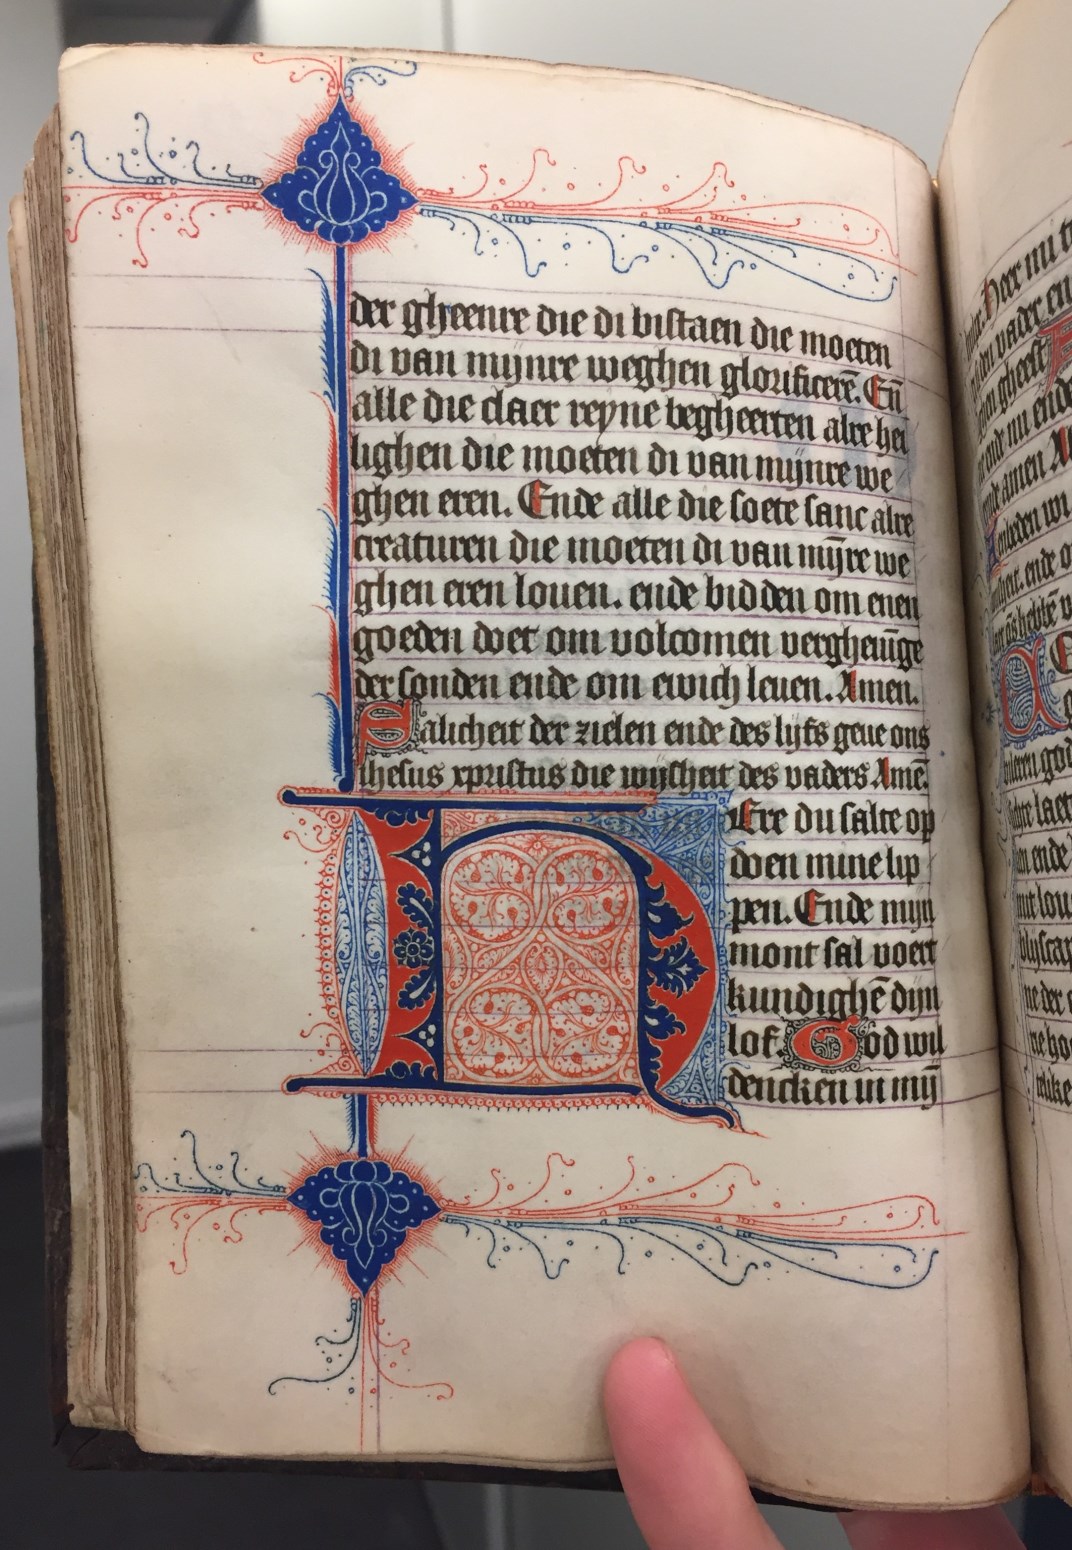 der gheenre die di bistaen die moeten
di van mijnre weghen glorificerē. Eñ
alle die claer reyne begheerten alre hei
lighen die moeten di van mijnre we
ghen eren. Ende alle die soete sanc alre
creaturen die moeten di van mijre we
ghen eren louen. ende bidden om enen
goeden doet om volcomen vergheuīge
der sonden ende om ewich leuen. Amen.
Salicheit der zielen ende des lijfs geue ons
ihesus xpristus die wijsheit des vaders Amē
HEre du salte op
doen mine lip
pen. Ende mijn
mont sal voert
kundighē dijn
lof. God wil
dencken in mij
Heer mi
vader en
gheest
ende nu ende
amen